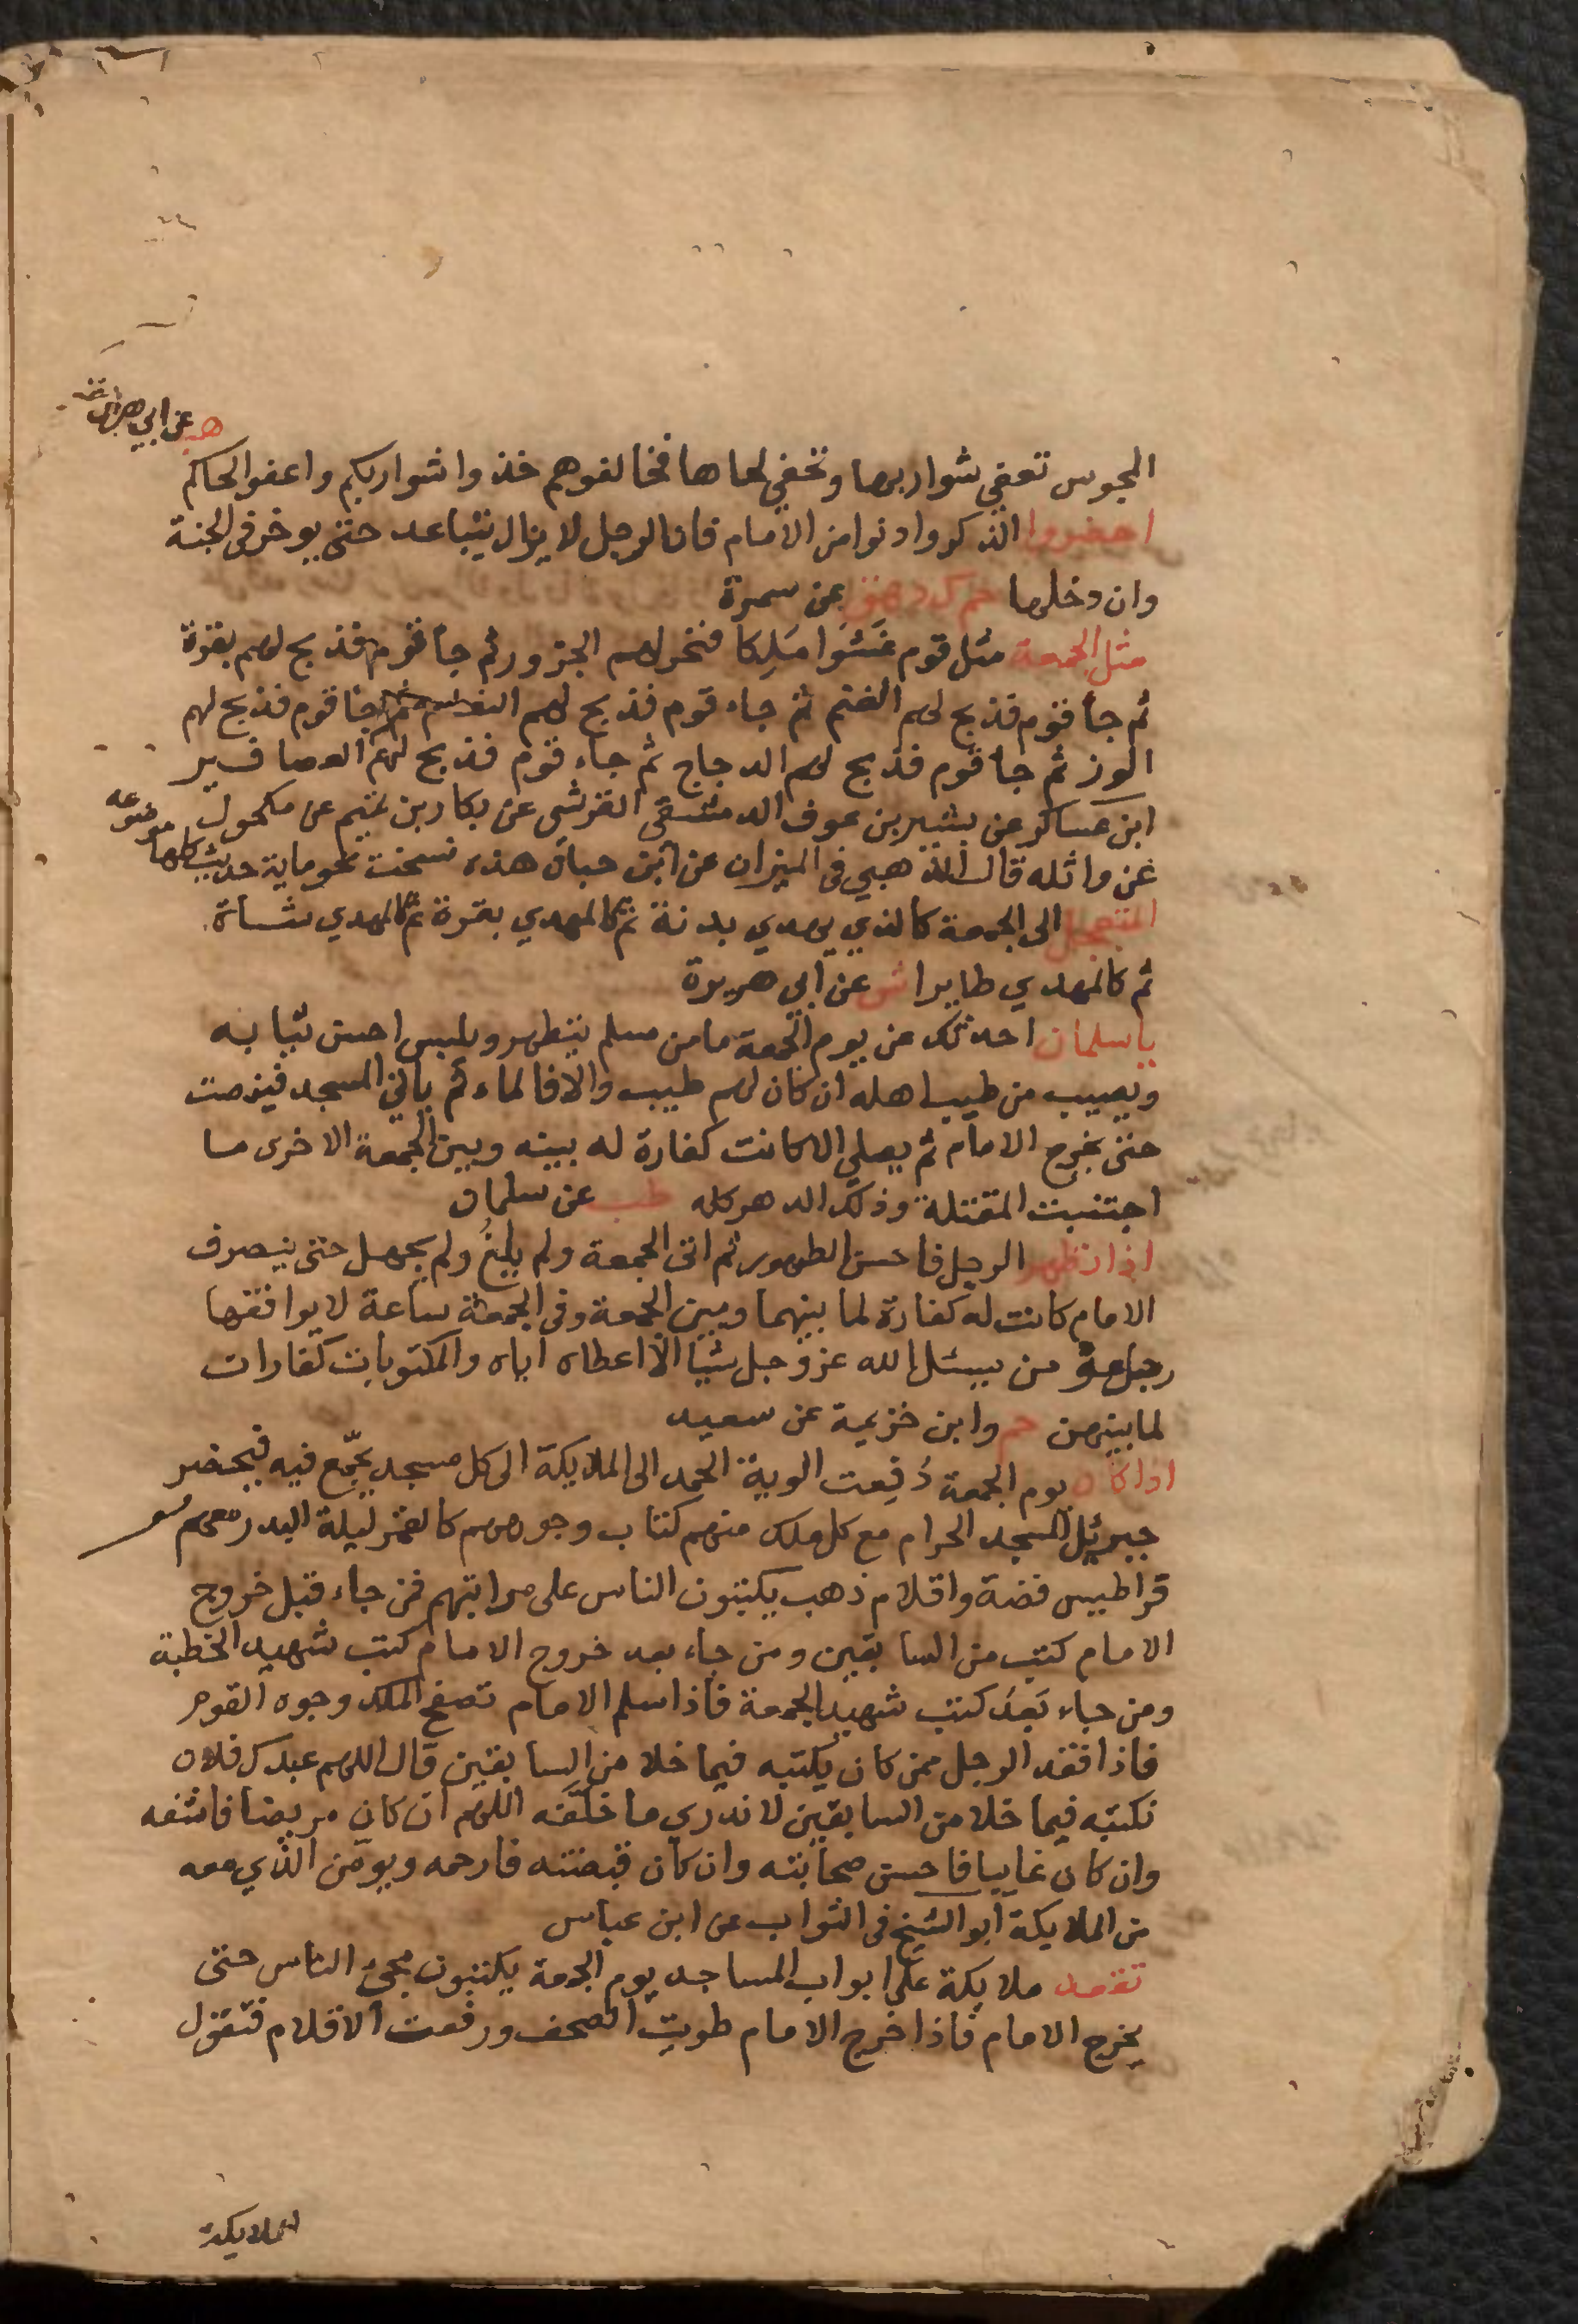 هب عن ابي هريرة
المجوس تعفي شواربها وتحفي لحاها فخالفوهم خذوا شواربكم واعفوا لحاكم
احضروا الذكر وادنوا من الامام فان الرجل لا يزال يتباعد حتى يوخر في الجنة
وان دخلها حم ك د هق عن سمرة
مثل الجمعة مثل قوم غشوا ملكا فنحر لهم الجزور ثم جا قوم فذبح لهم بقرة
ثم جا قوم فذبح لهم الغنم ثم جاء قوم فذبح لهم النعام ثم جا قوم فذبح لهم
الوز ثم جا قوم فذبح لهم الدجاج ثم جاء قوم فذبح لهم العصافير
ابن عساكر عن بشير بن عوف الدمشقي القرشي عن بكار بن تميم عن مكحول
عن واثله قال الذهبي في الميزان عن ابن حبان هذه نسخت نحو ماية حديث كلها موضوعه
المتعجل الى الجمعة كالذي يهدي بدنة ثم كالمهدي بقرة ثم كالمهدي شاة
ثم كالمهدي طايرا ش عن ابي هريرة
يا سلمان احدثك عن يوم الجمعة ما من مسلم يتطهر ويلبس احسن ثيابه
ويصيب من طيب اهله ان كان لهم طيب والا فالماء ثم ياتي المسجد فينصت
حتى يخرج الامام ثم يصلي الا كانت كفارة له بينه وبين الجمعة الاخرى ما
اجتنبت المقتلة وذلك الدهر كله طب عن سلمان
اذا تطهر الرجل فاحسن الطهور ثم اتى الجمعة ولم يلغ ولم يجهل حتى ينصرف
الامام كانت له كفارة لما بينها وبين الجمعة وفي الجمعة ساعة لا يوافقها
رجل مؤمن يسئل الله عز وجل شيا الا اعطاه اياه والمكتوبات كفارات
لما بينهن حم وابن خزيمة عن سعيد
اذا كان يوم الجمعة دُفِعت الوية الحمد الى الملايكة الى كل مسجد يجمّع فيه فيحضر
جبرئيل المسجد الحرام مع كل ملك منهم كتاب وجوههم كالقمر ليلة البدر معهم
قراطيس فضة واقلام ذهب يكتبون الناس على مراتبهم فمن جاء قبل خروج
الامام كتب من السابقين ومن جاء بعد خروج الامام كتب شهيد الخطبة
ومن جاء بَعدُ كتب شهيد الجمعة فاذا سلم الامام تصفح الملك وجوه القوم
فاذا فقد الرجل ممن كان يكتبه فيما خلا من السابقين قال اللهم عبدك فلان
نكتبه فيما خلا من السابقين لا ندري ما خلّفه اللهم ان كان مريضا فاشفه
وان كان غايبا فاحسن صحابته وان كان قبضته فارحمه ويومن الذي معه
من الملايكة ابو الشيخ في الثواب عن ابن عباس
تقعد ملايكة على ابواب المساجد يوم الجمعة يكتبون مجئ الناس حتى
يخرج الامام فاذا خرج الامام طويت الصحف ورفعت الاقلام فتقول
الملايكة